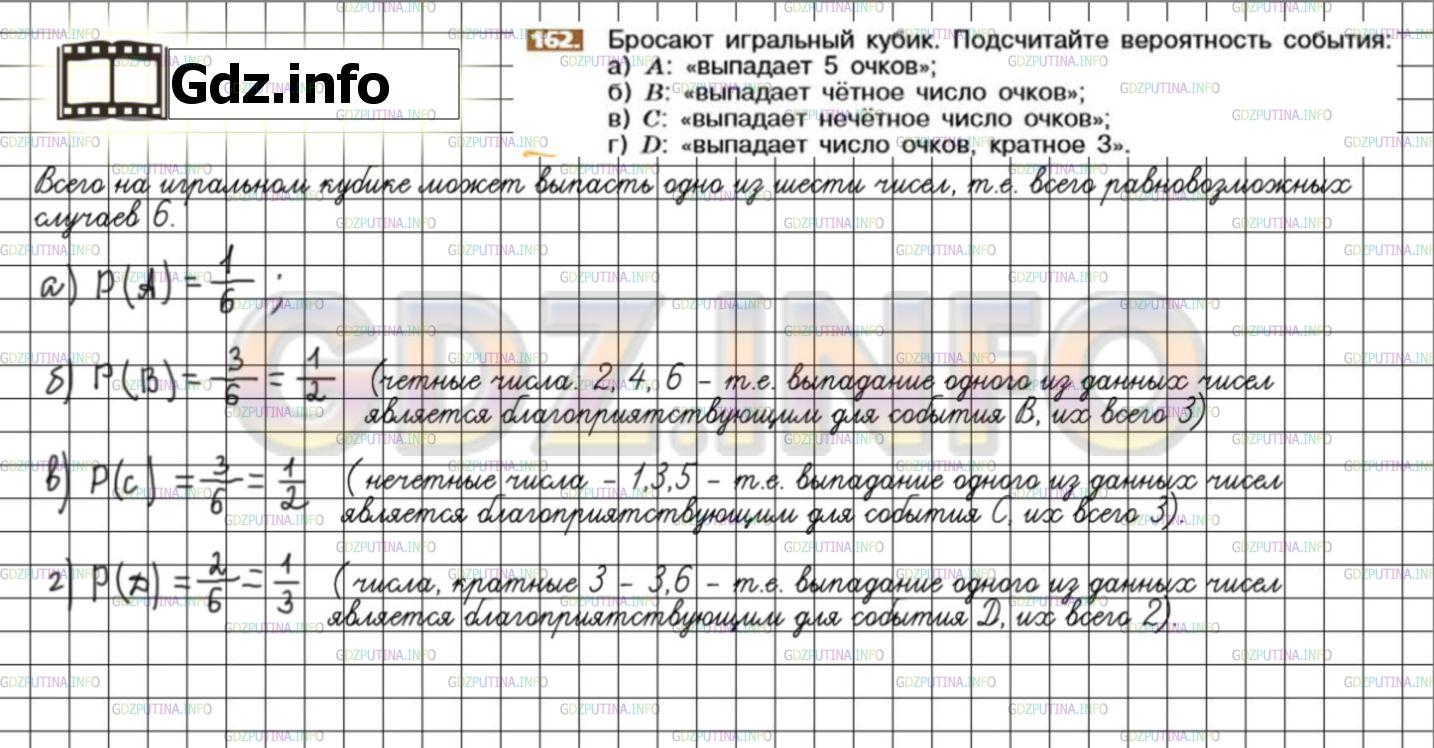 Gdz.info
162. Бросают игральный кубик. Подсчитайте вероятность события:
а) A: «выпадает 5 очков»;
б) B: «выпадает чётное число очков»;
в) C: «выпадает нечётное число очков»;
г) D: «выпадает число очков, кратное 3».
Всего на игральном кубике может выпасть одно из шести чисел, т.е. всего равновозможных
случаев 6.
а) P(A) = 1/6 ;
б) P(B) = 3/6 = 1/2 (четные числа. 2, 4, 6 – т.е. выпадание одного из данных чисел
является благоприятствующим для события B, их всего 3)
в) P(C) = 3/6 = 1/2 ( нечетные числа – 1,3,5 – т.е. выпадание одного из данных чисел
является благоприятствующим для события C, их всего 3).
г) P(D) = 2/6 = 1/3 ( числа, кратные 3 – 3,6 – т.е. выпадание одного из данных чисел
является благоприятствующим для события D, их всего 2).
GDZ.INFO
GDZPUTINA.INFO